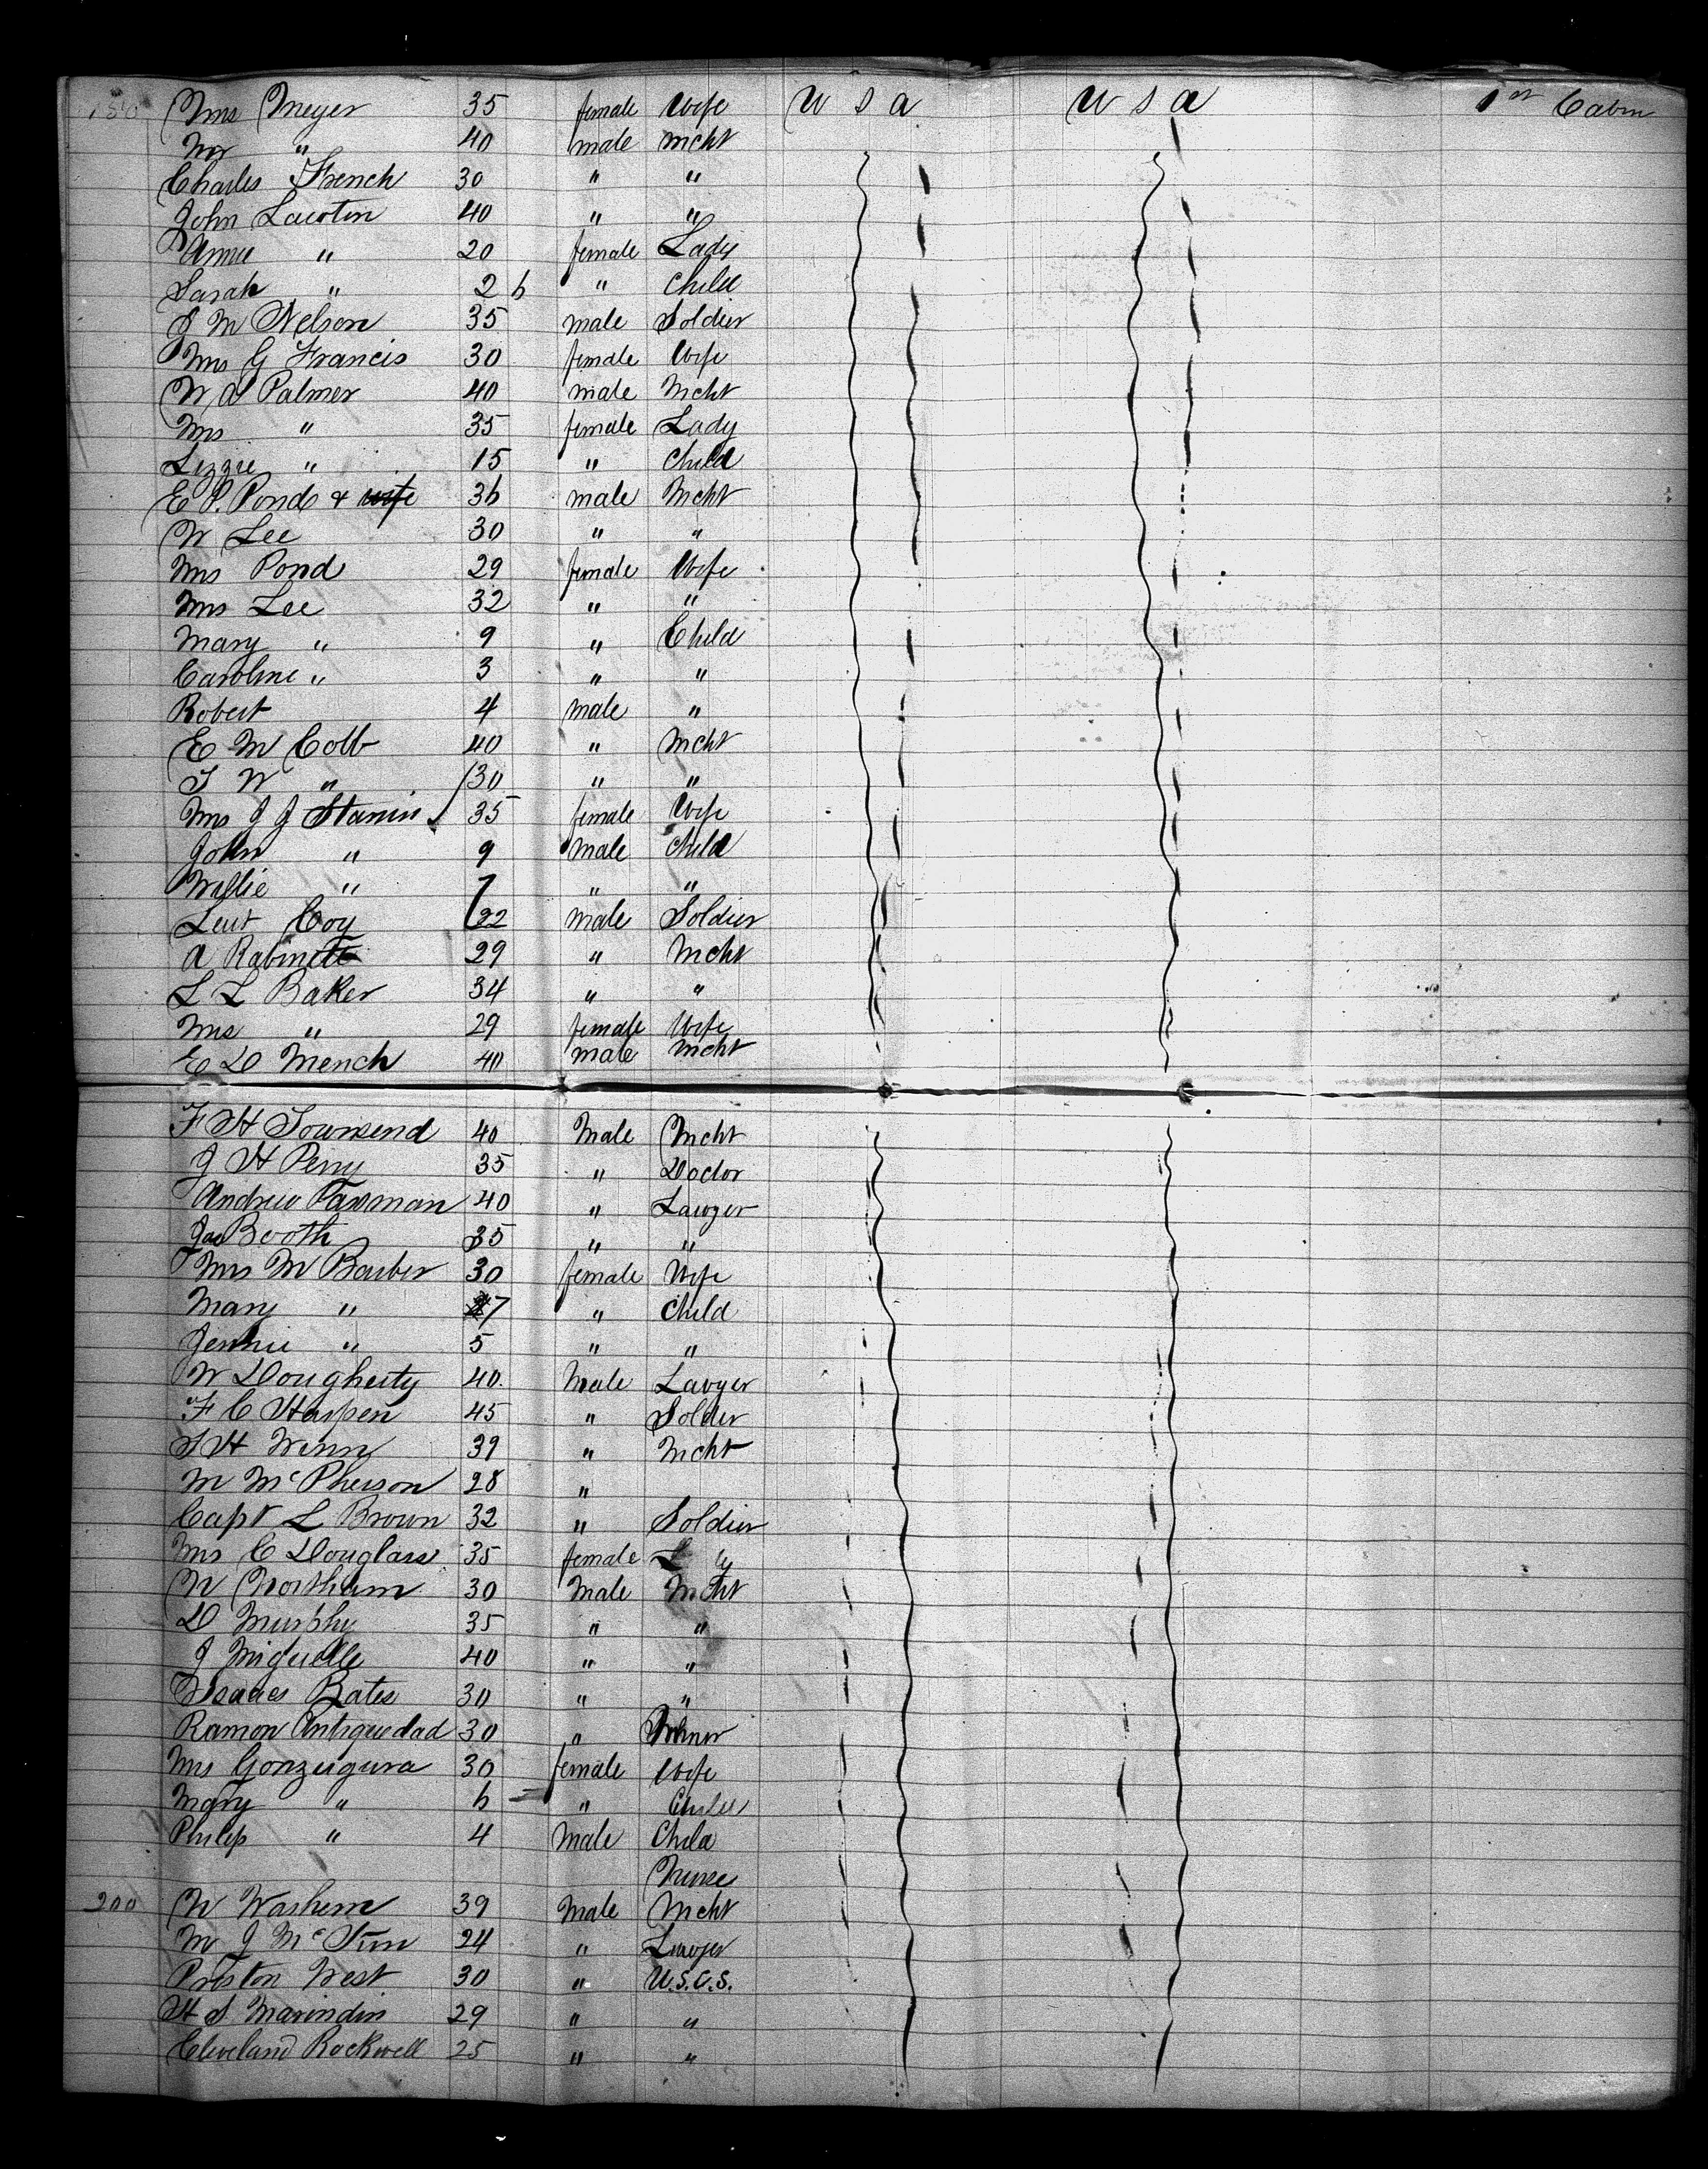 150 Mrs Meyer 35 female Wife U S A U S A 1st Cabin
Mr " 40 male mcht
Charles French 30 " "
John Lawtin 40 " "
Annie " 20 female Lady
Sarah " 2 6 " Child
J M Nelson 35 male Soldier
Mrs G Francis 30 female Wife
W A Palmer 40 male Mcht
Mrs " 35 female Lady
Lizzie " 15 " Child
E P. Pond & wife 36 male Mcht
W Lee 30 " "
Mrs Pond 29 female Wife
Mrs Lee 32 " "
Mary " 9 " Child
Caroline " 3 " "
Robert 4 male "
E M Cobb 40 " Mcht
T W " 30 " "
Mrs J J 35 female Wife
John " 9 male Child
Willie " 7 " "
Leut Coy 22 male Soldier
A 29 " Mcht
L L Baker 34 " "
Mrs " 29 female Wife
E D Mench 40 male mcht
F H Townsend 40 Male Mcht
J H Perry 35 " Doctor
Andrew 40 " Lawyer
Jas Booth 35 " "
Mrs M Barber 30 female Wife
Mary " 7 " Child
Jennie " 5 " "
W Dougherty 40 Male Lawyer
F C Harpen 45 " Solder
S H Winn 39 " Mcht
M McPherson 28 "
Capt L Brown 32 " Soldier
Mrs C Douglass 35 female
W Northam 30 Male Mcht
D Murphy 35 " "
J Miguelle 40 " "
Isaacs Bates 30 " "
Ramon Antiguedad 30 " Miner
Mrs Gonzugura 30 female Wife
Mary " 6 " Child
Philip " 4 Male Child
Nurse
200 W Washem 39 Male Mcht
M J 24 " Lawyer
Preston West 30 " U.S.C.S.
H S Marindin 29 " "
Cleveland Rockwell 25 " "